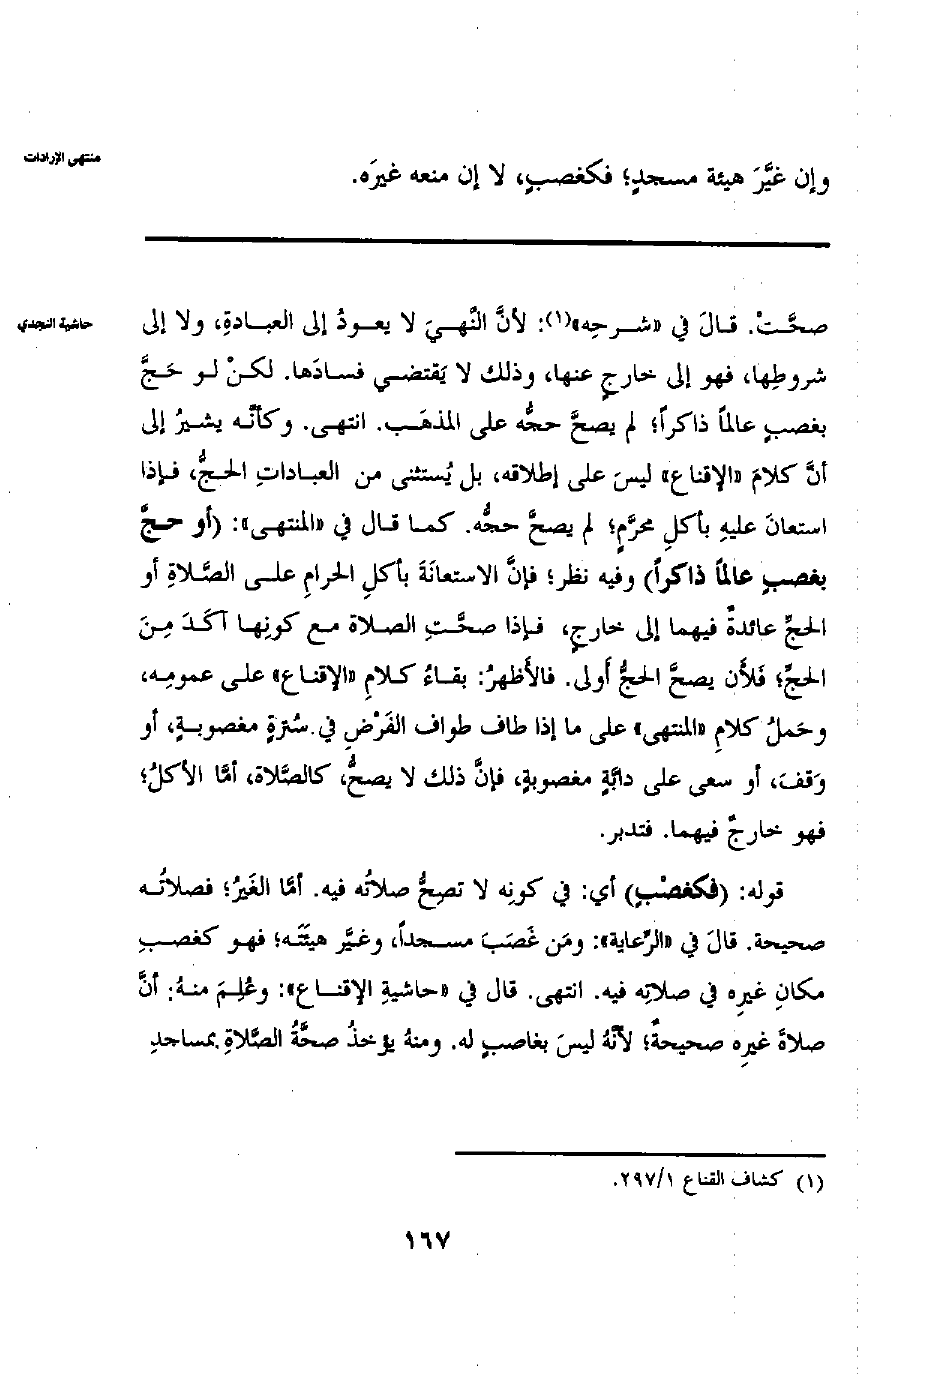 منتهى الإرادات
وإن غيَّرَ هيئة مسجدٍ؛ فكغصبٍ، لا إن منعه غيرَه.
حاشية النجدي
صحَّتْ. قالَ في «شرحِه»(١): لأنَّ النَّهيَ لا يعودُ إلى العبادةِ، ولا إلى
شروطِها، فهو إلى خارجٍ عنها، وذلك لا يَقتضي فسادَها. لكنْ لو حَجَّ
بغصبٍ عالماً ذاكراً؛ لم يصحَّ حجُّه على المذهَب. انتهى. وكأنَّه يشيرُ إلى
أنَّ كلامَ «الإقناع» ليسَ على إطلاقه، بل يُستثنى من العباداتِ الحجُّ، فإذا
استعانَ عليهِ بأكلِ محرَّمٍ؛ لم يصحَّ حجُّه. كما قال في «المنتهى»: (أو حجَّ
بغصبٍ عالماً ذاكراً) وفيه نظر؛ فإنَّ الاستعانَةَ بأكلِ الحرامِ على الصَّلاةِ أو
الحجِّ عائدةٌ فيهما إلى خارجٍ، فإذا صحَّتِ الصلاة مع كونِها آكَدَ مِنَ
الحجِّ؛ فَلأن يصحَّ الحجُّ أولى. فالأظهرُ: بقاءُ كلامِ «الإقناع» على عمومِه،
وحَملُ كلامِ «المنتهى» على ما إذا طاف طواف الفَرْضِ في سُترةٍ مغصوبةٍ، أو
وَقفَ، أو سعى على دابَّةٍ مغصوبةٍ، فإنَّ ذلك لا يصحُّ، كالصَّلاة، أمَّا الأكلُ؛
فهو خارجٌ فيهما. فتدبر.
قوله: (فكغصْبٍ) أي: في كونِه لا تصِحُّ صلاتُه فيه. أمَّا الغَيرُ؛ فصلاتُه
صحيحة. قالَ في «الرِّعاية»: ومَن غَصَبَ مسجداً، وغيَّر هيئَتَه؛ فهو كغصبِ
مكانِ غيرِه في صلاتِه فيه. انتهى. قال في «حاشيةِ الإقناع»: وعُلِمَ منهُ: أنَّ
صلاةَ غيرِه صحيحةٌ؛ لأنَّهُ ليسَ بغاصبٍ له. ومنهُ يؤخذُ صحَّةُ الصَّلاةِ بمساجدِ
(١) كشاف القناع ٢٩٧/١.
١٦٧